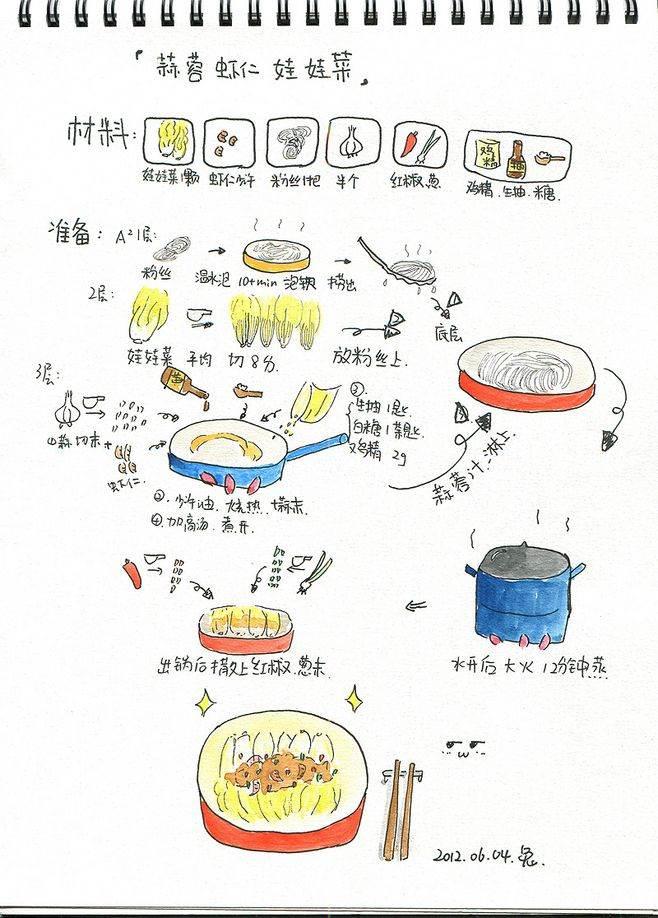 「蒜蓉虾仁娃娃菜」
材料:
娃娃菜1颗 虾仁少许 粉丝1把 半个 红椒.葱 鸡精.生抽.糖.
鸡精
准备: 1层:
粉丝 温水泡 10+min 泡软 捞出
2层: 底层
娃娃菜 平均 切8分. 放粉丝上.
3层:
①蒜.切末+
虾仁.
③.
生抽1匙
白糖1茶匙
鸡精 2g
蒜蓉汁.淋上.
②.少许油.烧热.
④.加高汤.煮开
出锅后撒上红椒.葱末.
水开后大火12分钟蒸
2012.06.04.兔.